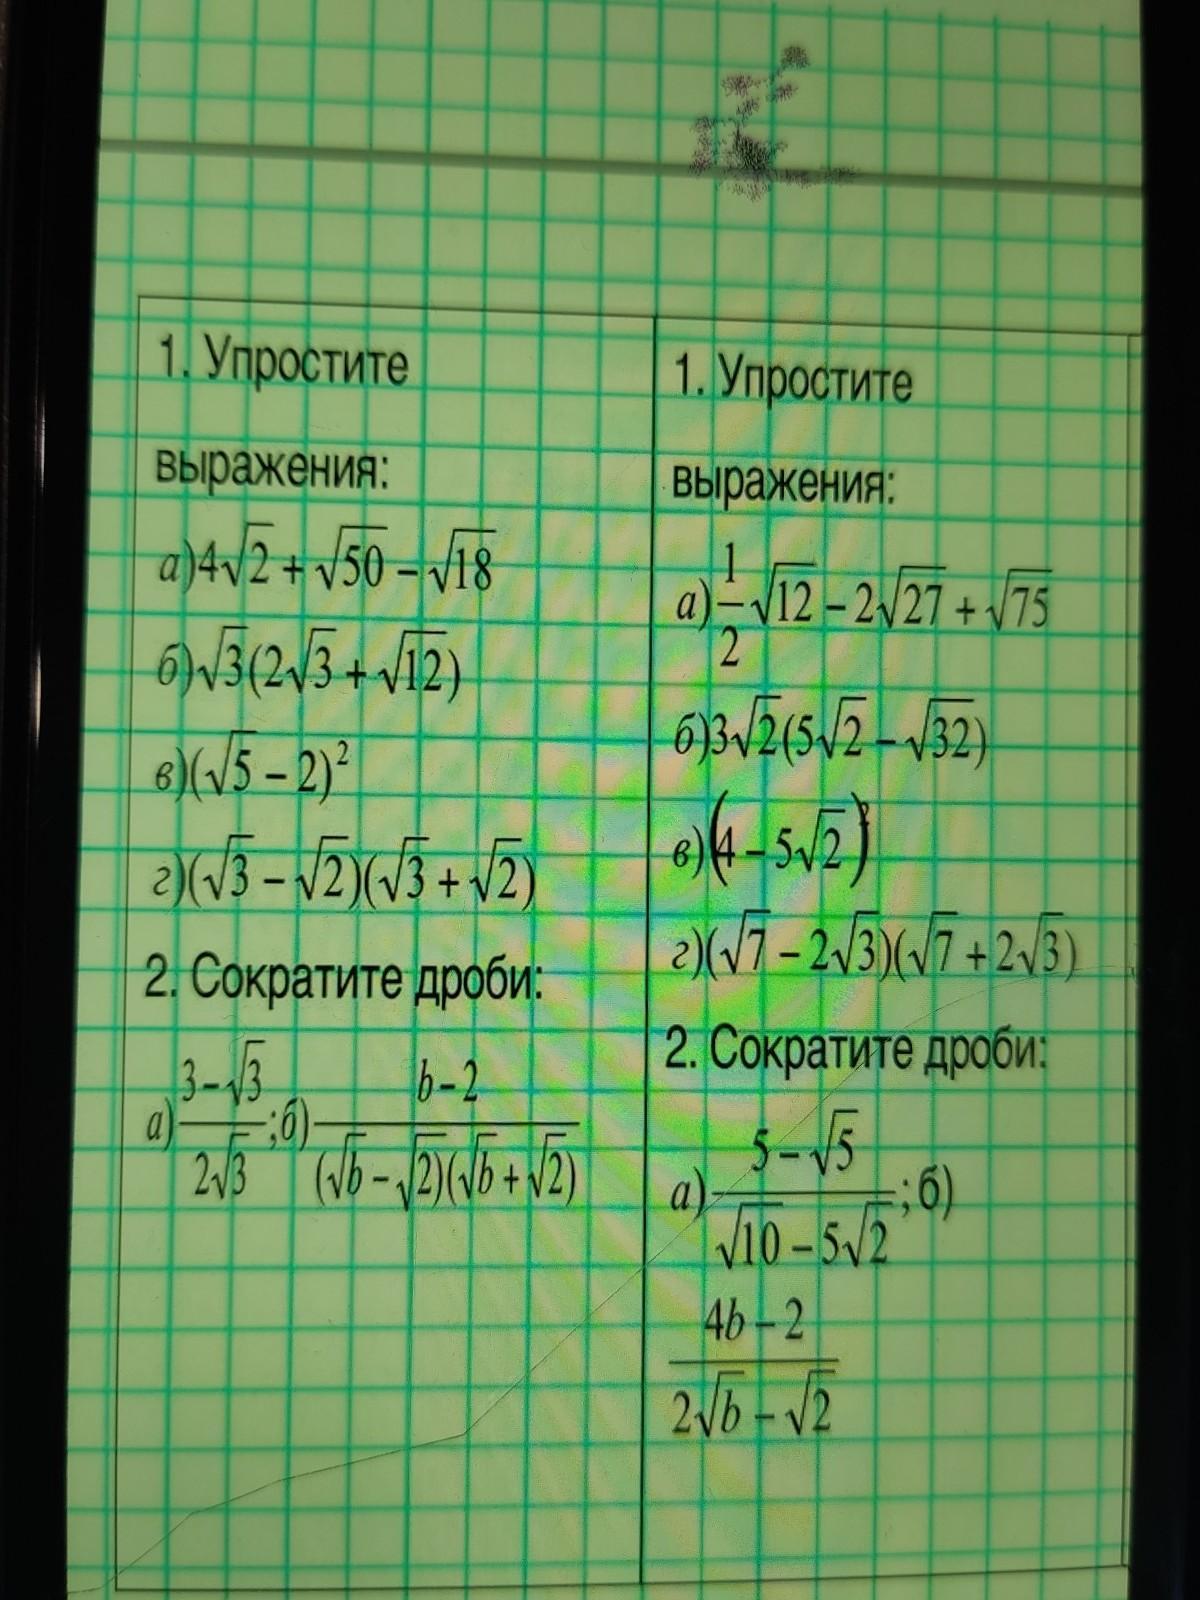 1. Упростите
выражения:
а)4√2 + √50 − √18
б)√3(2√3 + √12)
в)(√5 − 2)²
г)(√3 − √2)(√3 + √2)
2. Сократите дроби:
а) (3−√3)/(2√3) ;б) (b−2)/((√b − √2)(√b + √2))
1. Упростите
выражения:
а) 1/2 √12 − 2√27 + √75
б)3√2(5√2 − √32)
в)(4 − 5√2)²
г)(√7 − 2√3)(√7 + 2√3)
2. Сократите дроби:
а) (5 − √5)/(√10 − 5√2) ; б)
(4b − 2)/(2√b − √2)